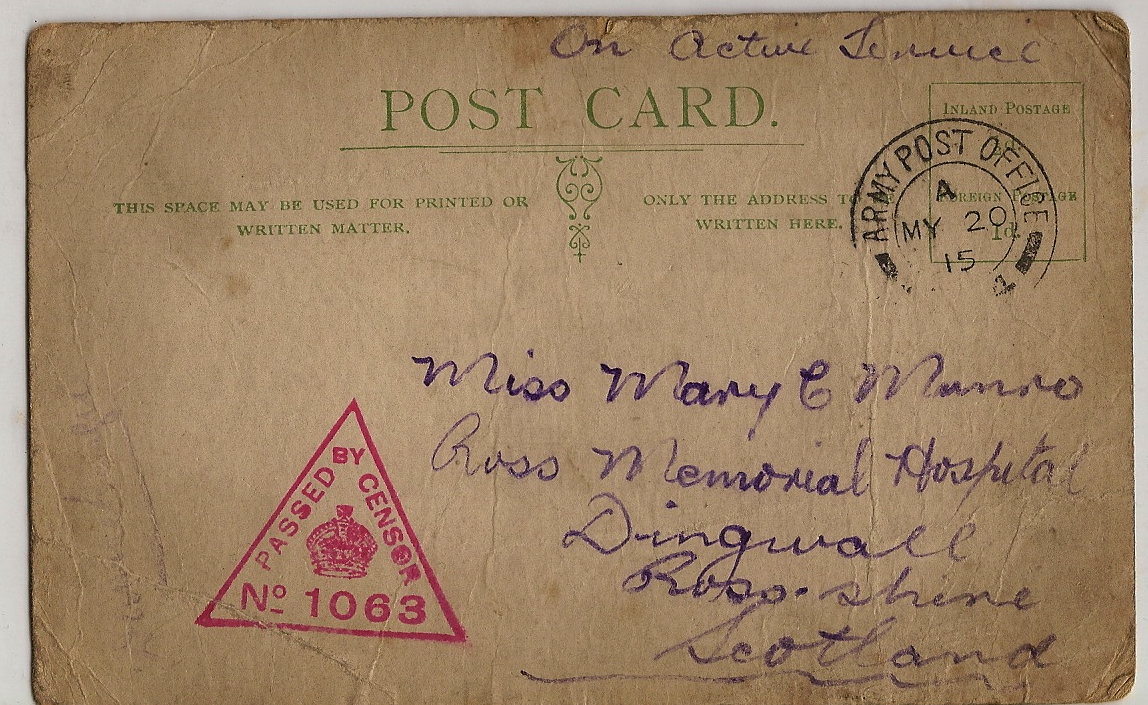 On Active Service
POST CARD.
INLAND POSTAGE
FOREIGN POSTAGE
1d.
ARMY POST OFFICE
A
MY 20
15
THIS SPACE MAY BE USED FOR PRINTED OR
WRITTEN MATTER.
ONLY THE ADDRESS TO
WRITTEN HERE.
Miss Mary C Munro
Ross Memorial Hospital
Dingwall
Ross-shire
Scotland
PASSED BY CENSOR
No 1063